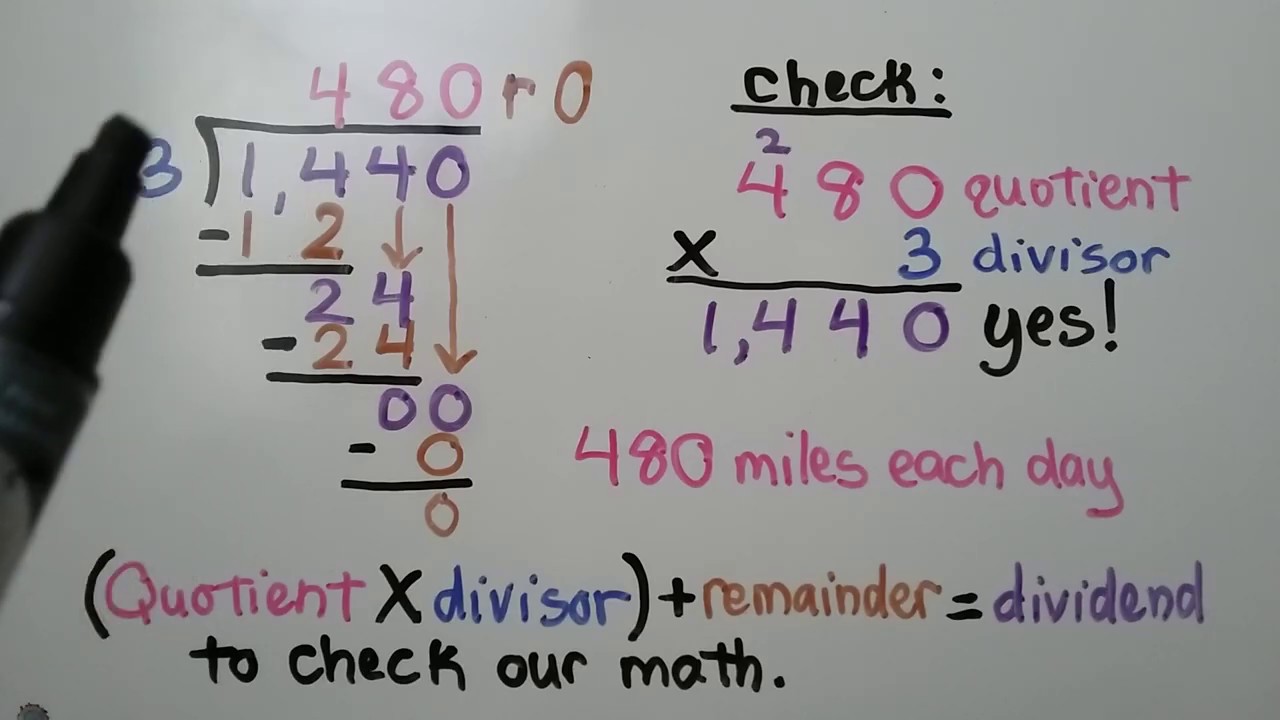 480 r 0
3 1,440
-1 2
24
-24
00
- 0
0
check:
2
480 quotient
X 3 divisor
1,440 yes!
480 miles each day
(Quotient X divisor) + remainder = dividend
to check our math.